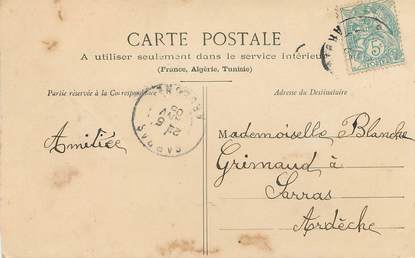 CARTE POSTALE
A utiliser seulement dans le service intérieur
(France, Algérie, Tunisie)
Partie réservée à la Correspondance
Adresse du Destinataire
Amitiée
Mademoiselle Blanche
Grimaud à
Sarras
Ardèche
SARRAS
ARDÈCHE
5